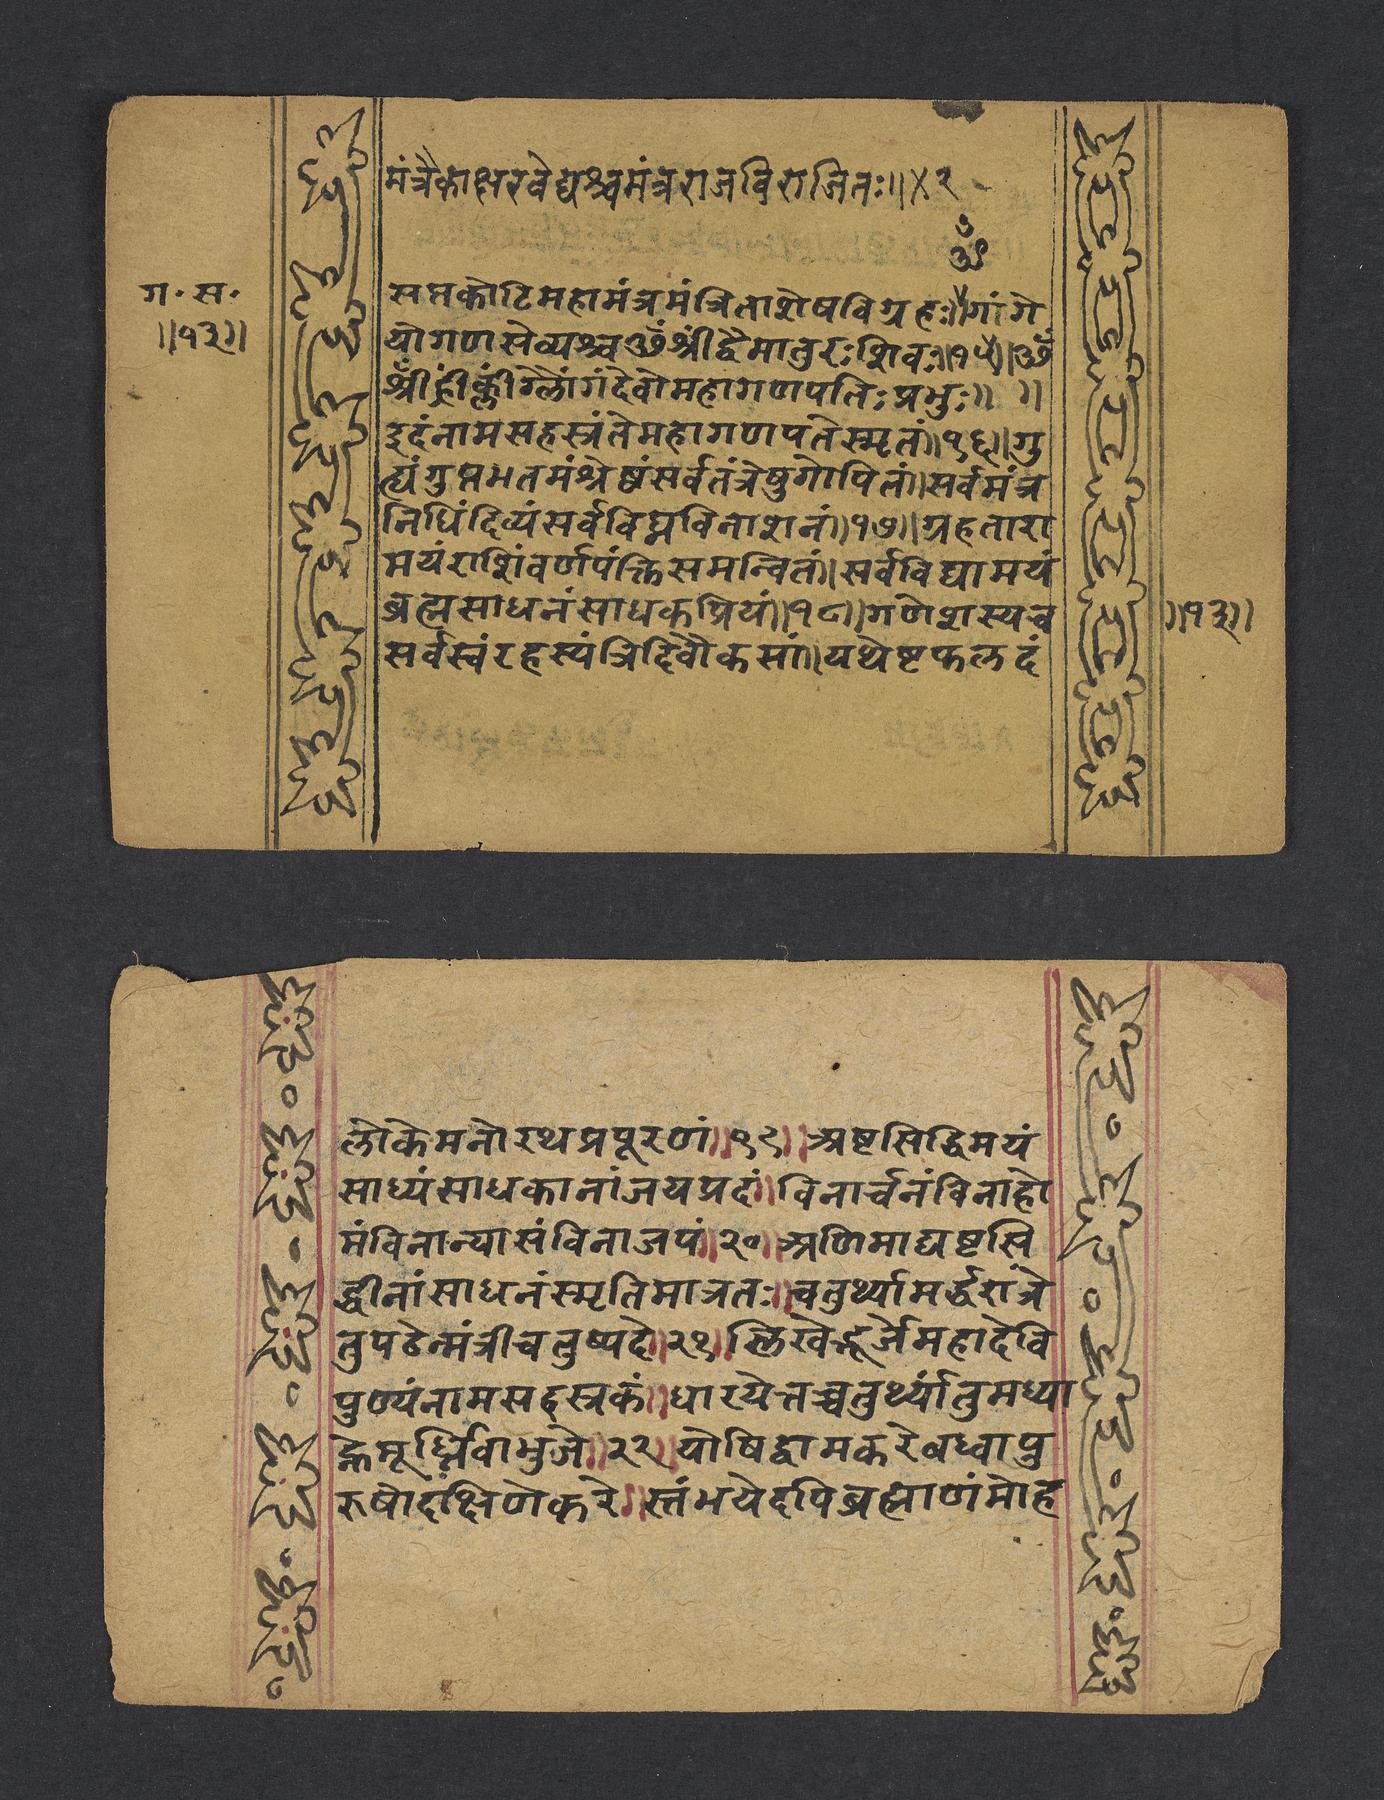 मंत्रैकाक्षरवेद्यश्चमंत्रराजविराजितः॥४२
ॐ
सप्तकोटिमहामंत्रमंत्रिताशेषविग्रहः॥गांगे
योगणसेव्यश्चॐश्रींद्वैमातुरःशिवः॥१५॥ॐ
श्रींह्रींक्लींग्लौंगंदेवोमहागणपतिःप्रभुः॥ ॥
इदंनामसहस्त्रंतेमहागणपतेस्मृतं॥१६॥गु
ह्यंगुप्तमतमंश्रेष्ठंसर्वतंत्रेषुगोपितं॥सर्वमंत्र
निधिंदिव्यंसर्वविघ्नविनाशनं॥१७॥ग्रहतारा
मयंराशिंवर्णपंक्तिसमन्वितं॥सर्वविद्यामयं
ब्रह्मसाधनंसाधकप्रियं॥१८॥गणेशस्यच
सर्वस्वंरहस्यंत्रिदिवौकसां॥यथेष्टफलदं
ग॰स॰
॥१३॥
॥१३॥
लोकेमनोरथप्रपूरणं॥१९॥अष्टसिद्धिमयं
साध्यंसाधकानांजयप्रदं॥विनार्चनंविनाहो
मंविनान्यासंविनाजपं॥२०॥अणिमाद्यष्टसि
द्धीनांसाधनंस्मृतिमात्रतः॥चतुर्थ्यामर्द्धरात्रे
तुपठेन्मंत्रीचतुष्पदे॥२१॥लिखेद्भूर्जेमहादेवि
पुण्यंनामसहस्त्रकं॥धारयेत्तच्चतुर्थ्यांतुमध्या
ह्नेमूर्ध्निवाभुजे॥२२॥योषिद्वामकरेबध्वापु
रुषोदक्षिणेकरे॥स्तंभयेदपिब्रह्माणंमोह